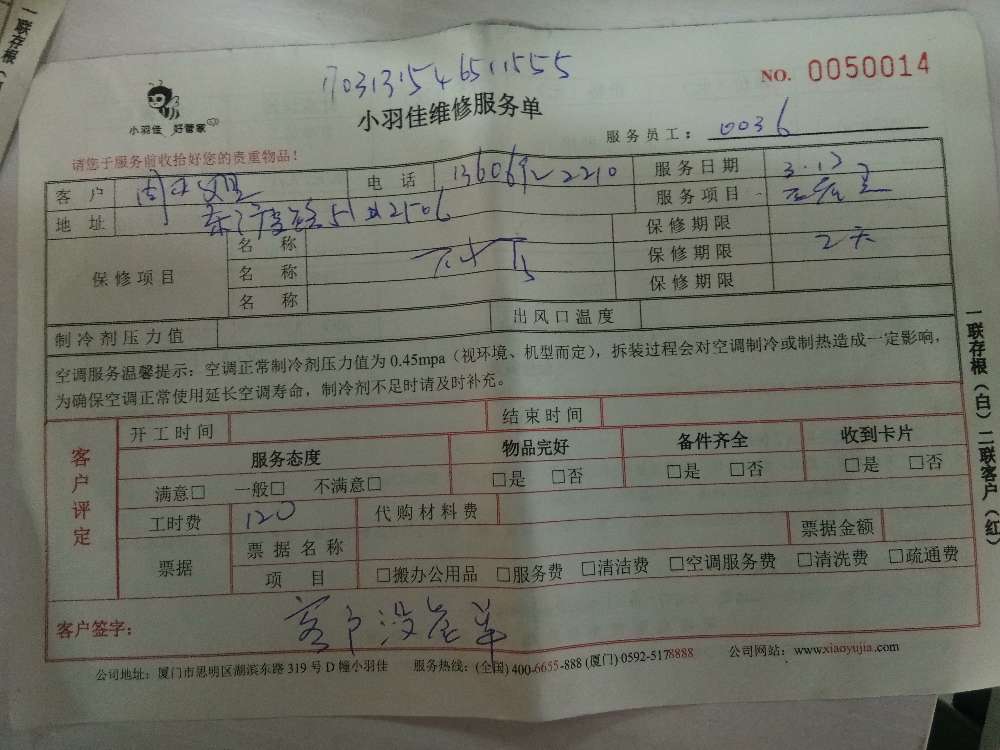 一联存根（
NO. 0050014
1703131546511555
小羽佳 好管家
小羽佳维修服务单
服务员工： 0036
请您于服务前收拾好您的贵重物品！
客 户 电 话 服务日期 3.13
地 址 服务项目
保修项目 名 称 保修期限
名 称 保修期限 2天
名 称 保修期限
制冷剂压力值 出风口温度
空调服务温馨提示：空调正常制冷剂压力值为 0.45mpa（视环境、机型而定），拆装过程会对空调制冷或制热造成一定影响，
为确保空调正常使用延长空调寿命，制冷剂不足时请及时补充。
客户评定
开工时间 结束时间
服务态度 物品完好 备件齐全 收到卡片
满意□ 一般□ 不满意□ □是 □否 □是 □否 □是 □否
工时费 120 代购材料费
票据 票据名称 票据金额
项 目 □搬办公用品 □服务费 □清洁费 □空调服务费 □清洗费 □疏通费
客户签字： 客户没在单
公司地址：厦门市思明区湖滨东路 319 号 D 幢小羽佳 服务热线：(全国) 400-6655-888 (厦门) 0592-5178888 公司网站：www.xiaoyujia.com
一联存根（白）二联客户（红）